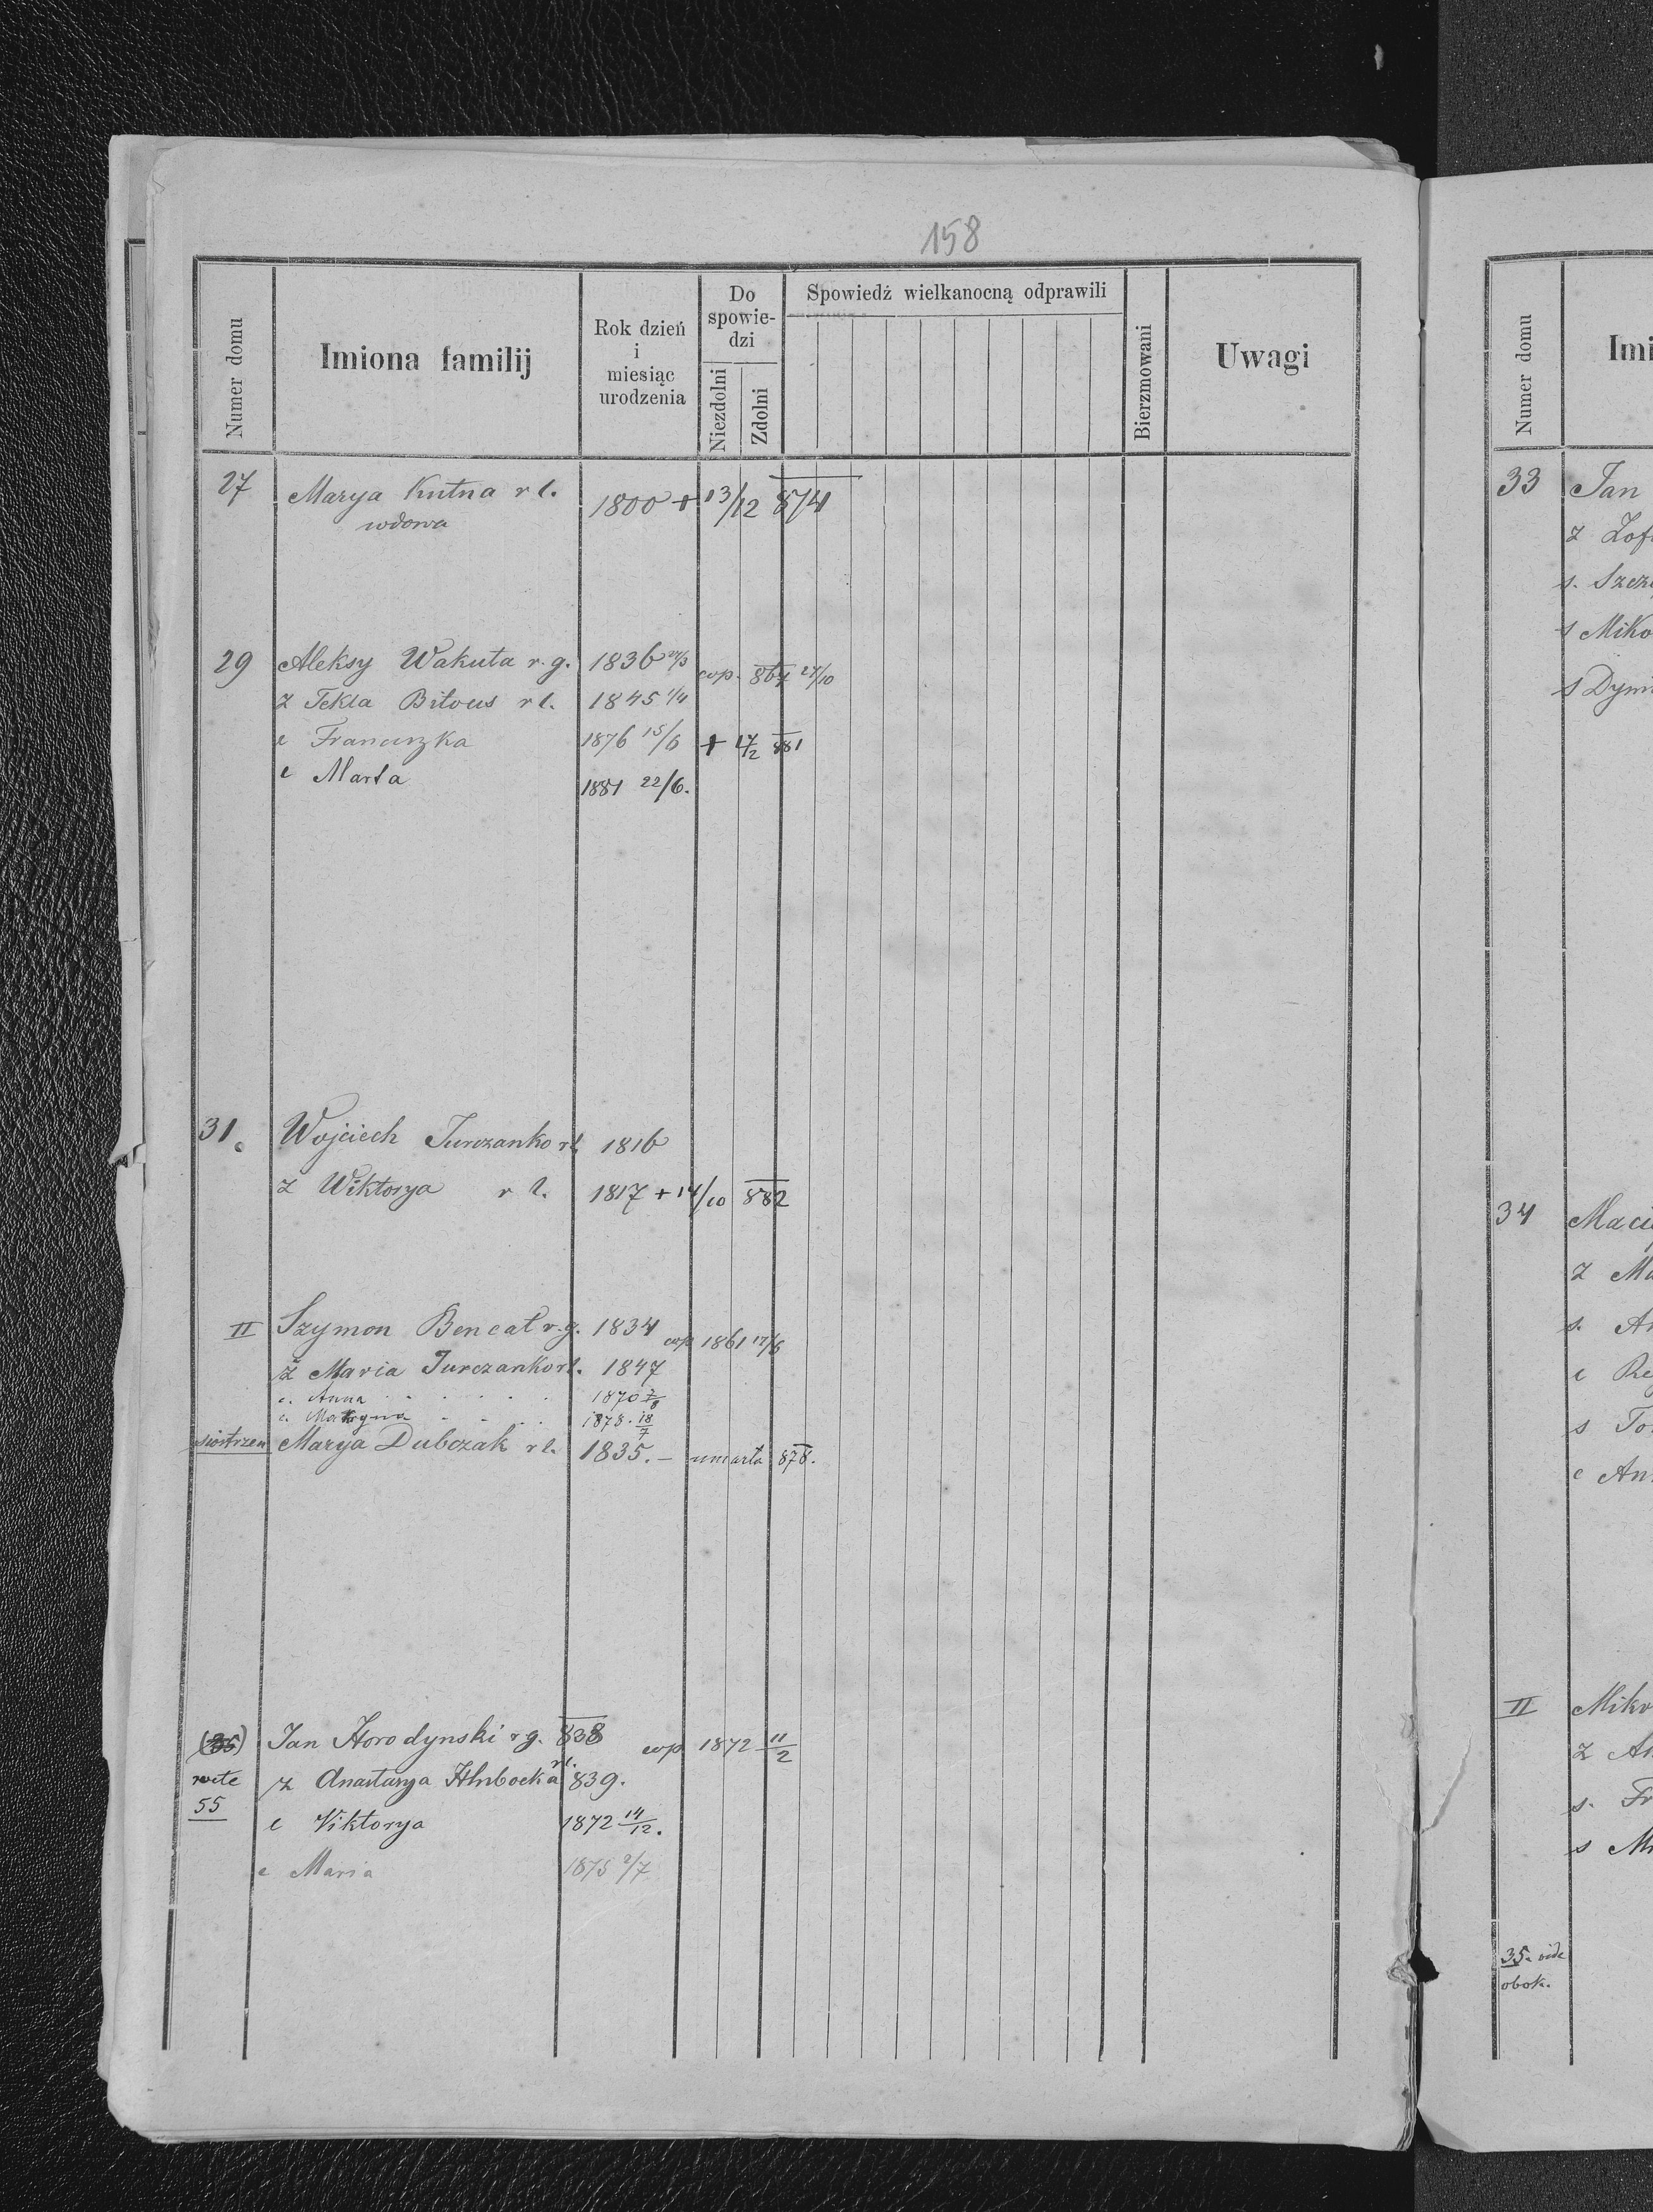 158
Numer domu
Imiona familij
Rok dzień
i
miesiąc
urodzenia
Do
spowie-
dzi
Niezdolni
Zdolni
Spowiedź wielkanocną odprawili
Bierzmowani
Uwagi
27 Marya Kutna rl. 1800 + 13/12 874
wdowa
29 Aleksy Wakuta r.g. 1836 cop. 867 27/10
ż Tekla Bitous rl. 1845 1/4
c Franciszka 1876 15/6 + 17/2 881
c Marta 1881 22/6.
31. Wojciech Jurczanko rl. 1816
ż Wiktorya rl. 1817 + 14/10 882
II Szymon Bencal r.g. 1834 cop 1861 17/6
ż Maria Jurczanko rl. 1847
c. Anna 1870 7/8
c. 1878. 18/7
siostrzen Marya Dubczak rl. 1835. - umarła 878.
Jan Horodynski rg. 838 cop 1872 11/2
ż Anastazya Hlubocka rl. 839.
55
c Viktorya 1872 14/12.
c Maria 1875 2/7
Numer domu
Imi
33 Jan
ż Zof
s. Szcz
s Miko
s Dym
34 Maci
ż Ma
s. An
c Re
s To
c An
II Miko
ż An
s. Fr
s Mi
35. vide
obok.